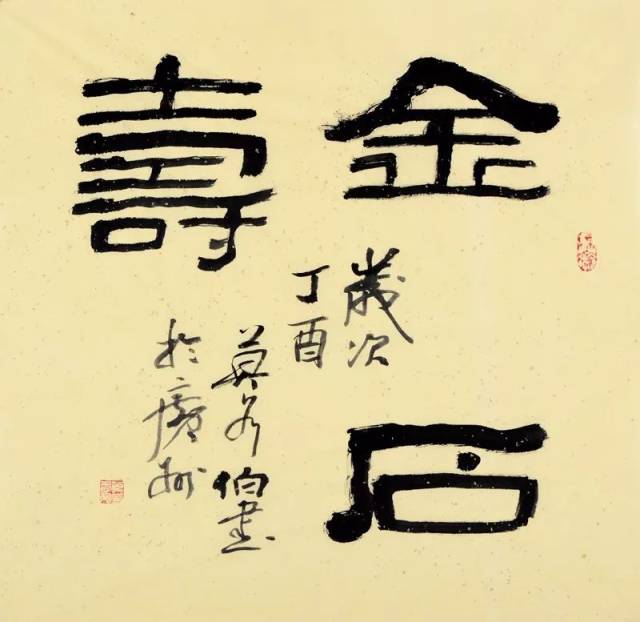 金石
壽
歲次
丁酉
莫各伯書
於廣州